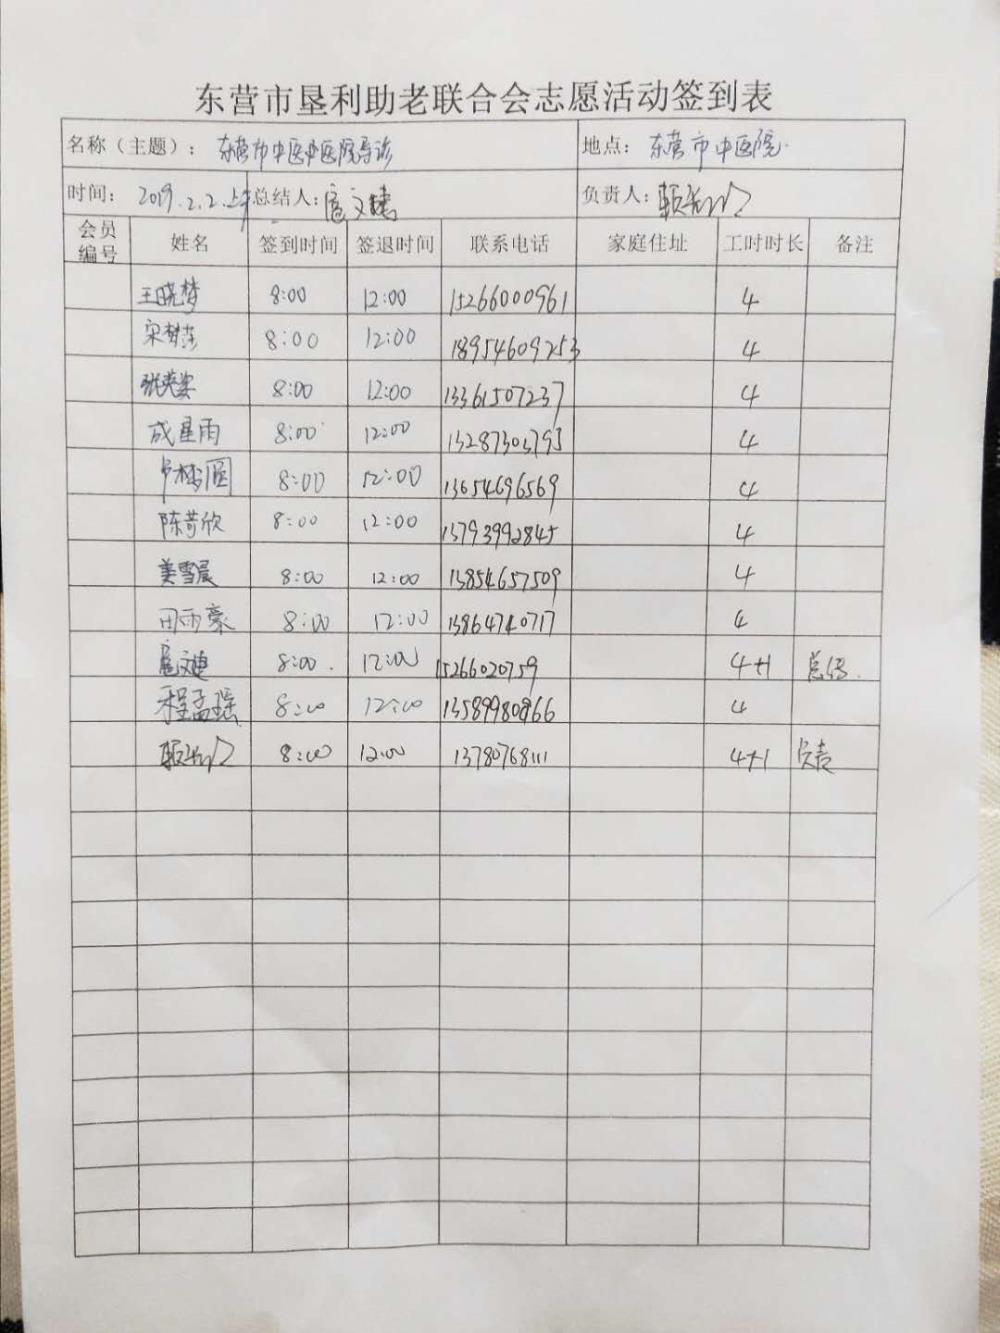 东营市垦利助老联合会志愿活动签到表
名称（主题）： 东营市中医中医院导诊 地点： 东营市中医院
时间： 2019.2.2.上午 总结人： 扈文婕 负责人：
会员编号 姓名 签到时间 签退时间 联系电话 家庭住址 工时时长 备注
王晓梦 8:00 12:00 15266000961 4
宋梦萍 8:00 12:00 18954609253 4
8:00 12:00 13361507237 4
成星雨 8:00 12:00 4
8:00 12:00 13654696569 4
陈苛欣 8:00 12:00 13793992845 4
姜雪晨 8:00 12:00 13854657509 4
田雨豪 8:00 12:00 13864740717 4
扈文婕 8:00 12:00 15266020759 4+1 总结
程孟瑶 8:00 12:00 4
8:00 12:00 13780768111 4+1 负责